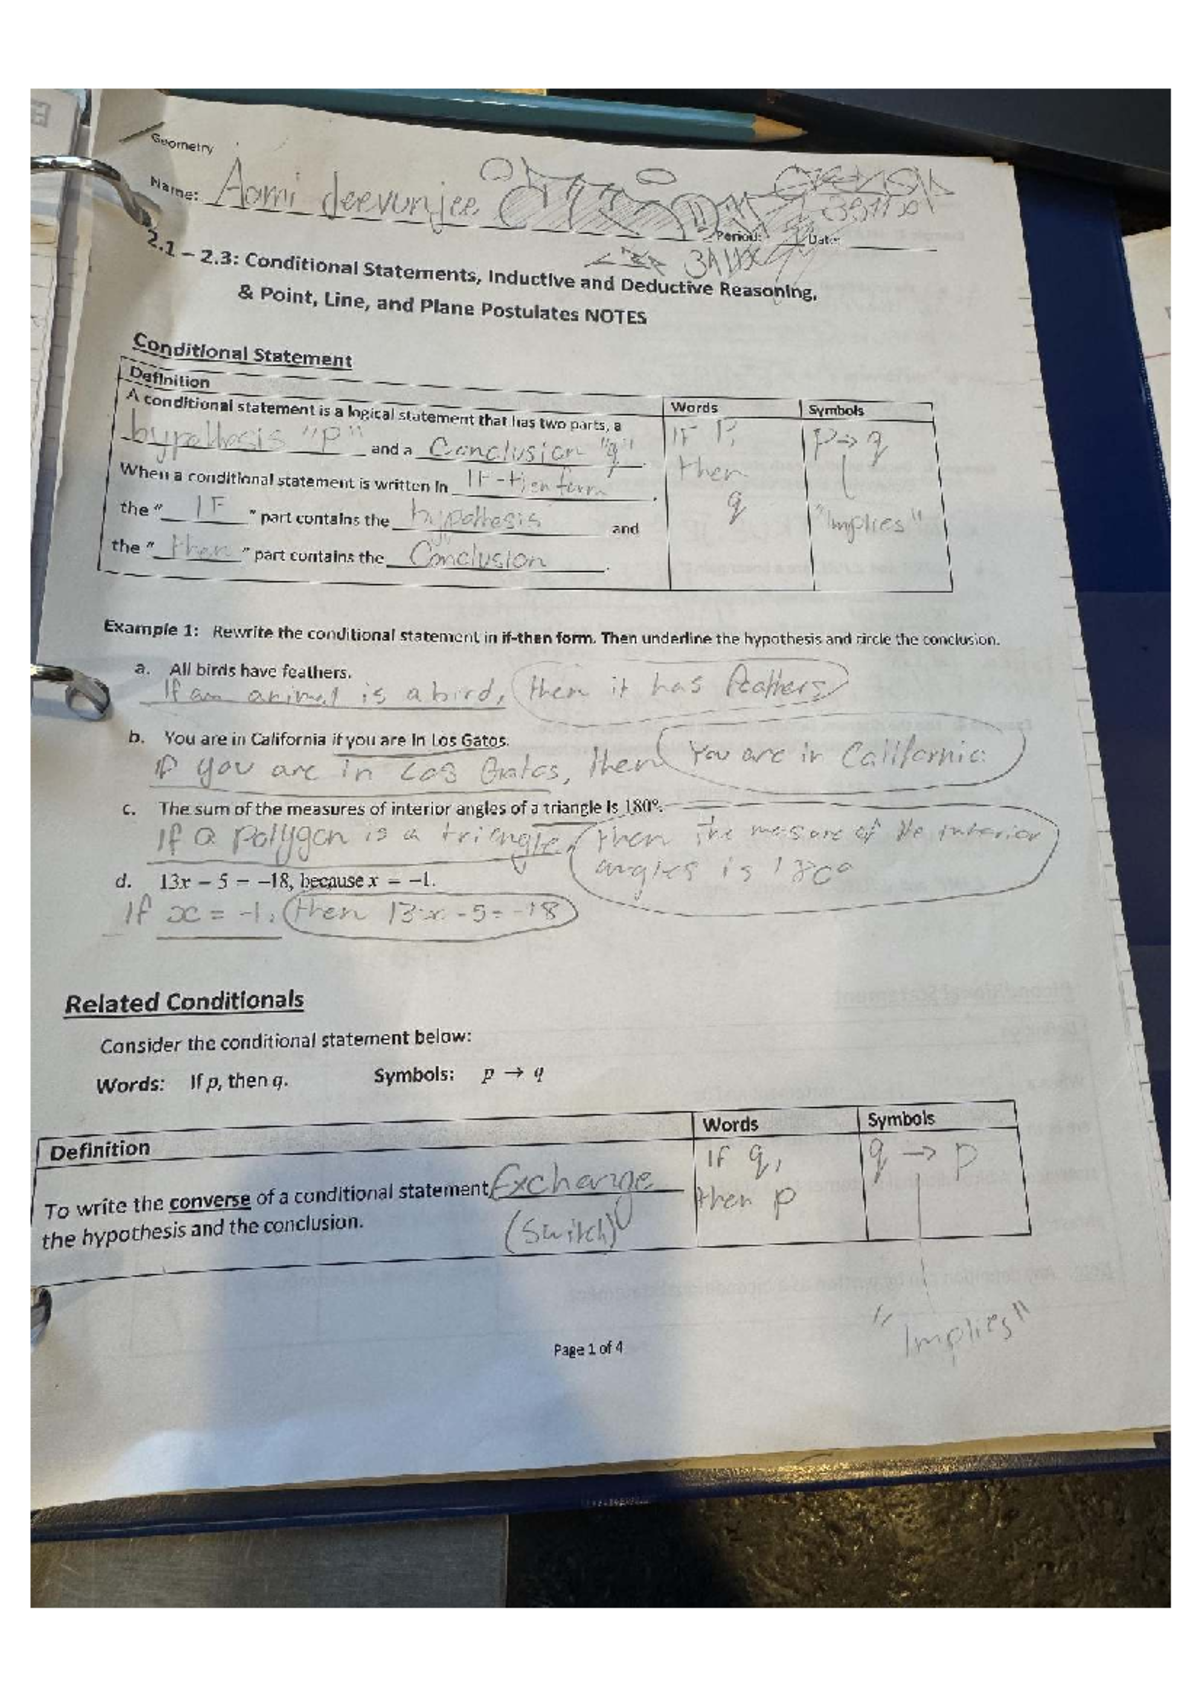 Geometry
Name: Aomi deevunjee
Period: Date:
2.1 – 2.3: Conditional Statements, Inductive and Deductive Reasoning,
& Point, Line, and Plane Postulates NOTES
Conditional Statement
Definition Words Symbols
A conditional statement is a logical statement that has two parts, a
hypothesis "p" and a Conclusion "q".
When a conditional statement is written in If-then form.
the "IF" part contains the hypothesis and
the "then" part contains the Conclusion.
IF P,
then
q
p → q
"Implies"
Example 1: Rewrite the conditional statement in if-then form. Then underline the hypothesis and circle the conclusion.
a. All birds have feathers.
If an animal is a bird, then it has feathers
b. You are in California if you are in Los Gatos.
If you are in Los Gatos, then You are in California.
c. The sum of the measures of interior angles of a triangle is 180°.
If a polygon is a triangle, then the measure of the interior
angles is 180°
d. 13x – 5 = –18, because x = –1.
If x = -1, then 13x - 5 = -18
Related Conditionals
Consider the conditional statement below:
Words: If p, then q. Symbols: p → q
Definition Words Symbols
To write the converse of a conditional statement, Exchange
(Switch)
the hypothesis and the conclusion.
If q,
then p
q → p
"Implies"
Page 1 of 4